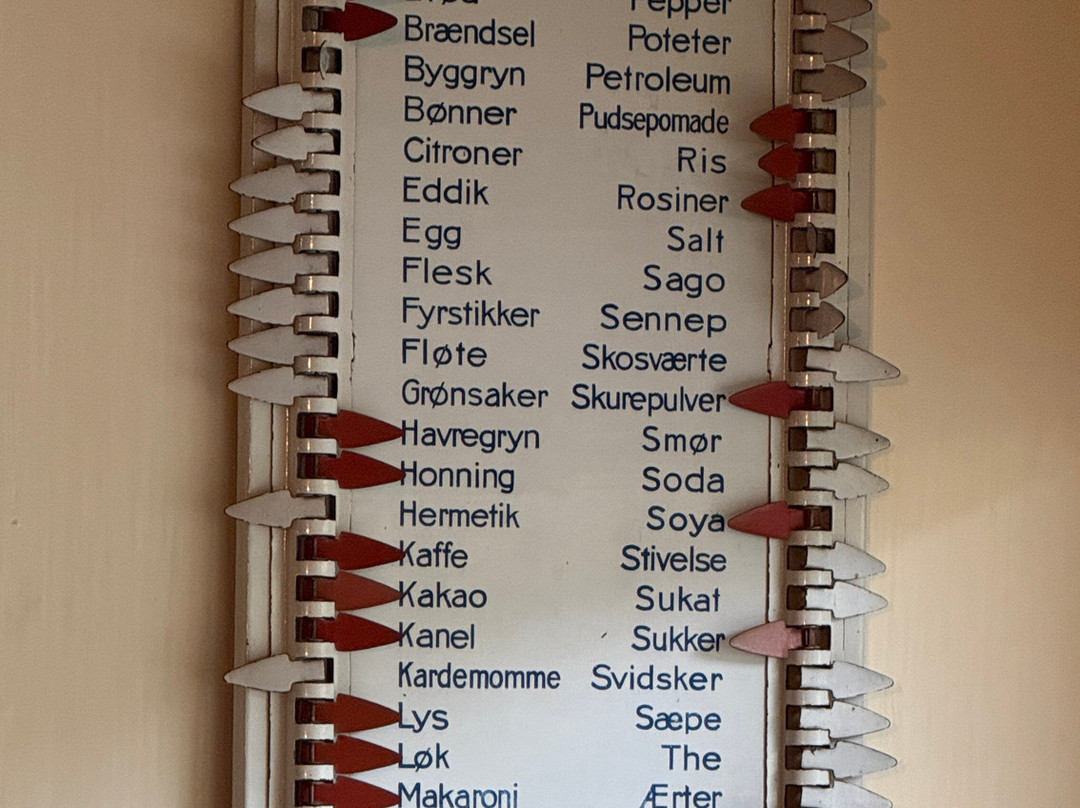 Brød
Pepper
Brændsel
Poteter
Byggryn
Petroleum
Bønner
Pudsepomade
Citroner
Ris
Eddik
Rosiner
Egg
Salt
Flesk
Sago
Fyrstikker
Sennep
Fløte
Skosværte
Grønsaker
Skurepulver
Havregryn
Smør
Honning
Soda
Hermetik
Soya
Kaffe
Stivelse
Kakao
Sukat
Kanel
Sukker
Kardemomme
Svidsker
Lys
Sæpe
Løk
The
Makaroni
Ærter